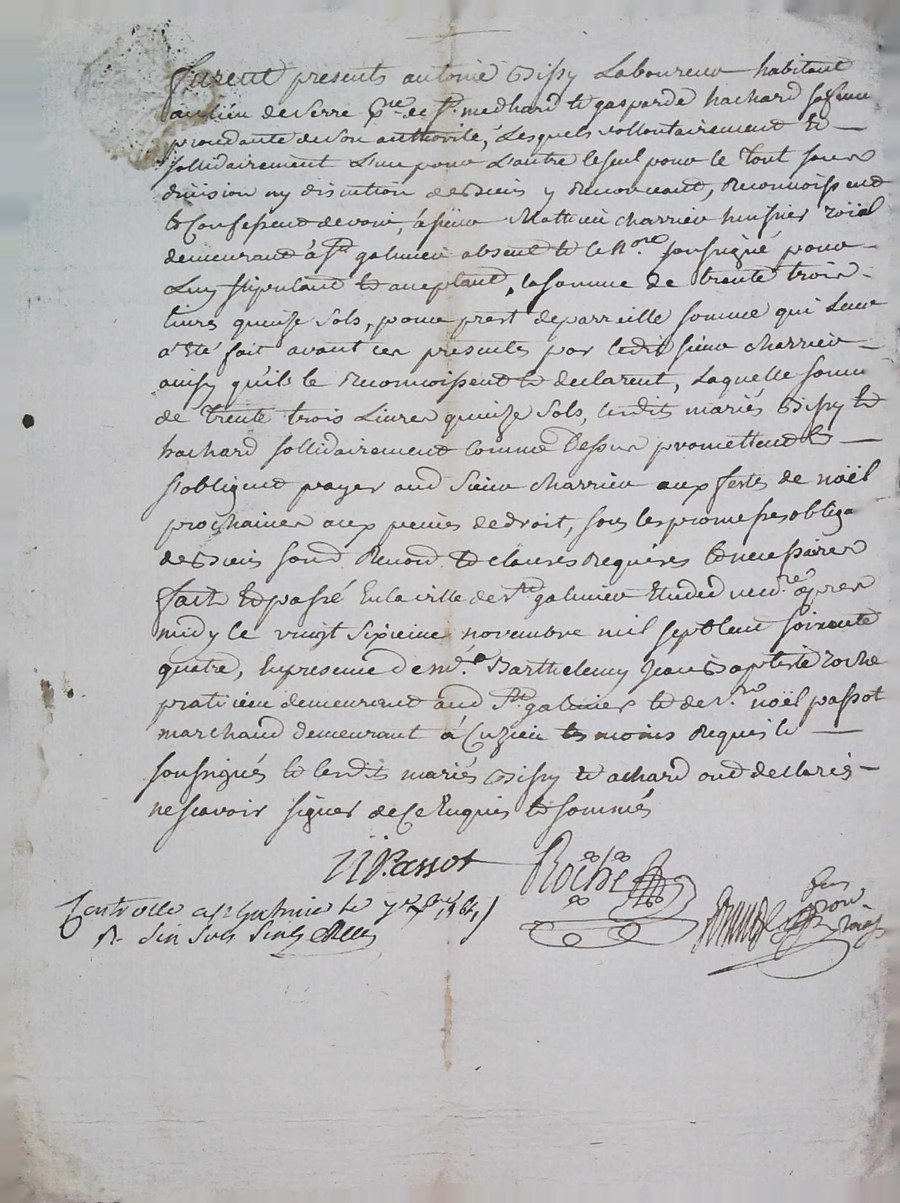 furent presents antoine Bissy Laboureur habitant
au lieu de serre p.sse de st. medhard et gasparde hachard sa femme
procedante de son authorité, Lesquels vollontairement et
sollidairement L'un pour L'autre le seul pour le Tout sans
division ny discution de biens y Renonceant, Reconnoissent
et Confessent devoir, a sieur Mathieu charrier huissier roïal
demeurant à st galmier absent et le No.re soussigné pour
Luy stipulant et acceptant, la somme de trente trois
livres quinse sols, pour prest de parreille somme qui Leur
a Eté fait avant ces presentes par ledit sieur charrier
ainsy qu'ils le Reconnoissent et declarent, Laquelle somme
de trente trois Livres quinze sols, lesdits mariés Bissy et
hachard sollidairement comme Dessus promettent et
s'obligent payer aud sieur charrier aux festes de noël
prochaines aux peines de droit, sous les promesses obliga
de Biens soub Renon. et clauses Requises et necessaires
fait et passé En la ville de st galmier Etude du no.re apres
midy le vingt sixieme novembre mil sept Cent soixante
quatre, En presence de m.e Barthelemy Jean Baptiste roche
praticien demeurant aud st galmier et de s.r noël passot
marchand demeurant à Cuzieu tesmoins Requis et
soussignés et lesdits mariés Bissy et achard ont declarés
ne scavoir signer de Ce Enquis et sommés
N Passot
Roche
Controlle a st Galmier le
R. Six sols Six